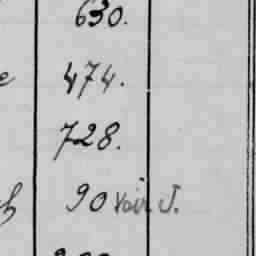 630.
474.
728.
90 voir J.